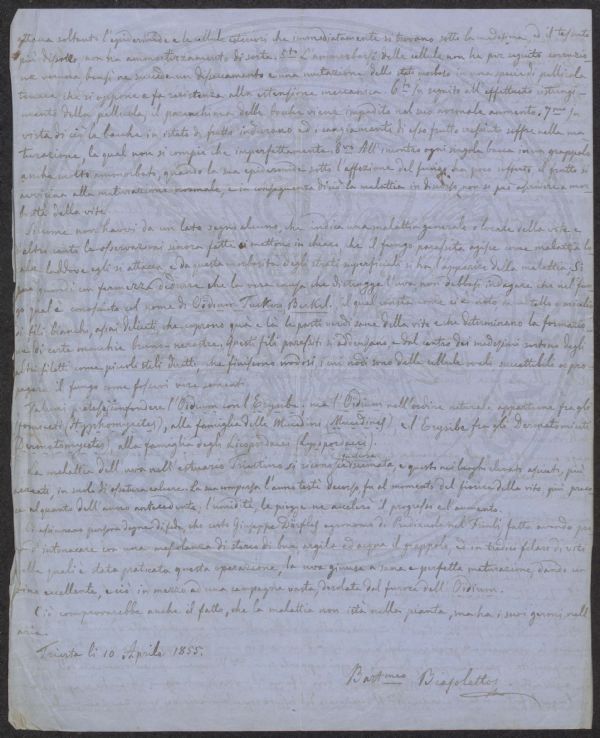 attacca soltanto l'epidermide e le cellule esteriori che immediatamente si trovano sotto la medesima, ed il tessuto
più disotto non ha ammorbizzamenti di sorta. 5to L'ammorbarsi delle cellule non ha per seguito corruzio-
ne veruna bensì ne succede un disseccamento e una mutazione dello stato morboso in una specie di pellicola
tenace, che si oppone e fa resistenza alla estensione meccanica. 6to In seguito all'effettuato ristringi-
mento della pellicola, il parenchima delle bacche viene impedito nel suo normale aumento. 7mo In
vista di ciò le bacche in istato di frutto indurano ed i svariamenti di esso frutto soffre nella ma-
turazione, la qual non si compie che imperfettamente. 8vo All'incontro ogni singola bacca in un grappolo
anche molto ammorbato, quando la sua epidermide sotto l'affezione del fungo ha poco sofferto, il frutto si
avvicina alla maturazione normale, e in conseguenza di ciò la malattia in discorso non si può ascrivere a mor-
bosità della vite.
Siccome non havvi da un lato segno alcuno, che indica una malattia generale o locale della vite e
d'altro canto le osservazioni sinora fatte mettono in chiaro che il fungo parassita agisce come malattia lo-
cale laddove egli si attacca, e da questa morbosità degli strati superficiali si ha l'apparire della malattia. Si
può quindi con fermezza dedurre che la vera causa che distrugge l'uva non debbasi indagare che nel fun-
go qual è conosciuto col nome di Oidium Tuckeri Berkel. il qual consta come si è noto da un tallo o micelio
di fili bianchi, assai delicati che coprono qua e là le parti verdi sane della vite e che determinano la formazio-
ne di certe macchie bruno nerastre. Questi fili parassiti si addensano e dal centro dei medesimi sortono degli
altri filetti come piccoli steli diretti, che finiscono nodosi i cui nodi sono delle cellule ovali suscettibili di pro-
pagare il fungo come fossero vere sementi.
Taluni confondere l'Oidium con l'Erysibe, ma l'Oidium nell'ordine naturale appartiene fra gli
Ifomiceti (Hyphomycetes), alla famiglia delle Mucedini (Mucedines) e l'Erysibe fra gli Dermatomiceti
(Dermatomycetes), alla famiglia degli Licoperdacei (Lycoperdacei).
La malattia dell'uva nell'estuario Triestino si riconosce incrudita, e questo nei luoghi elevati asciutti, più
aereati, in suoli di ossatura calcare. La sua comparsa l'anno testè decorso fu al momento del fiorire della vite, più preco-
ce alquanto dell'anno antecedente; l'umidità, le pioggie ne accelerò il progresso ed aumento.
Ci assicurano persone degne di fede, che certo Giuseppe agronomo di nel Friuli fatto avendo pro-
va d'intonacare con una mescolanza di sterco di bue argilla ed acqua il grappolo, ed in tredici filari di vite
nelle quali è stata praticata questa operazione, la uva giunse a sana e perfetta maturazione, dando un
vino eccellente, e ciò in mezzo ad una campagna vasta, desolata dal furore dell'Oidium.
Ciò comproverebbe anche il fatto, che la malattia non istà nella pianta, ma ha i suoi germi nell'
aria.
Trieste li 10 Aprile 1855.
Bartmeo Biasoletto